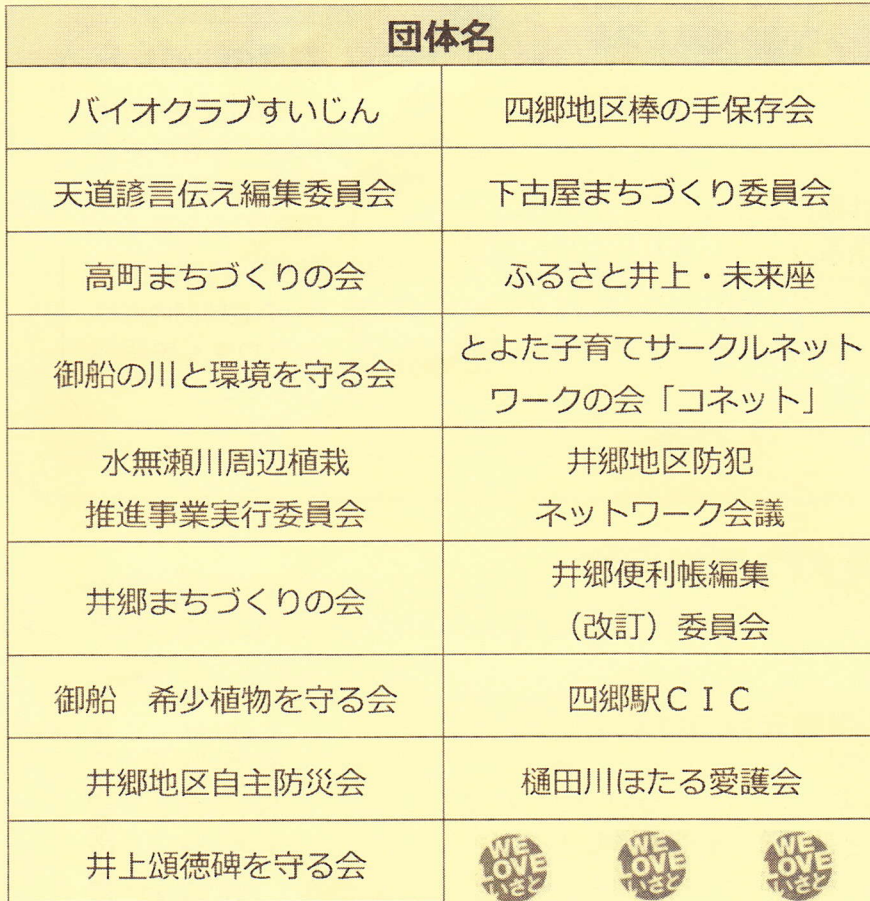 団体名
バイオクラブすいじん
四郷地区棒の手保存会
天道諺言伝え編集委員会
下古屋まちづくり委員会
高町まちづくりの会
ふるさと井上・未来座
御船の川と環境を守る会
とよた子育てサークルネット
ワークの会「コネット」
水無瀬川周辺植栽
推進事業実行委員会
井郷地区防犯
ネットワーク会議
井郷まちづくりの会
井郷便利帳編集
（改訂）委員会
御船　希少植物を守る会
四郷駅ＣＩＣ
井郷地区自主防災会
樋田川ほたる愛護会
井上頌徳碑を守る会
WE
LOVE
いさと
WE
LOVE
いさと
WE
LOVE
いさと